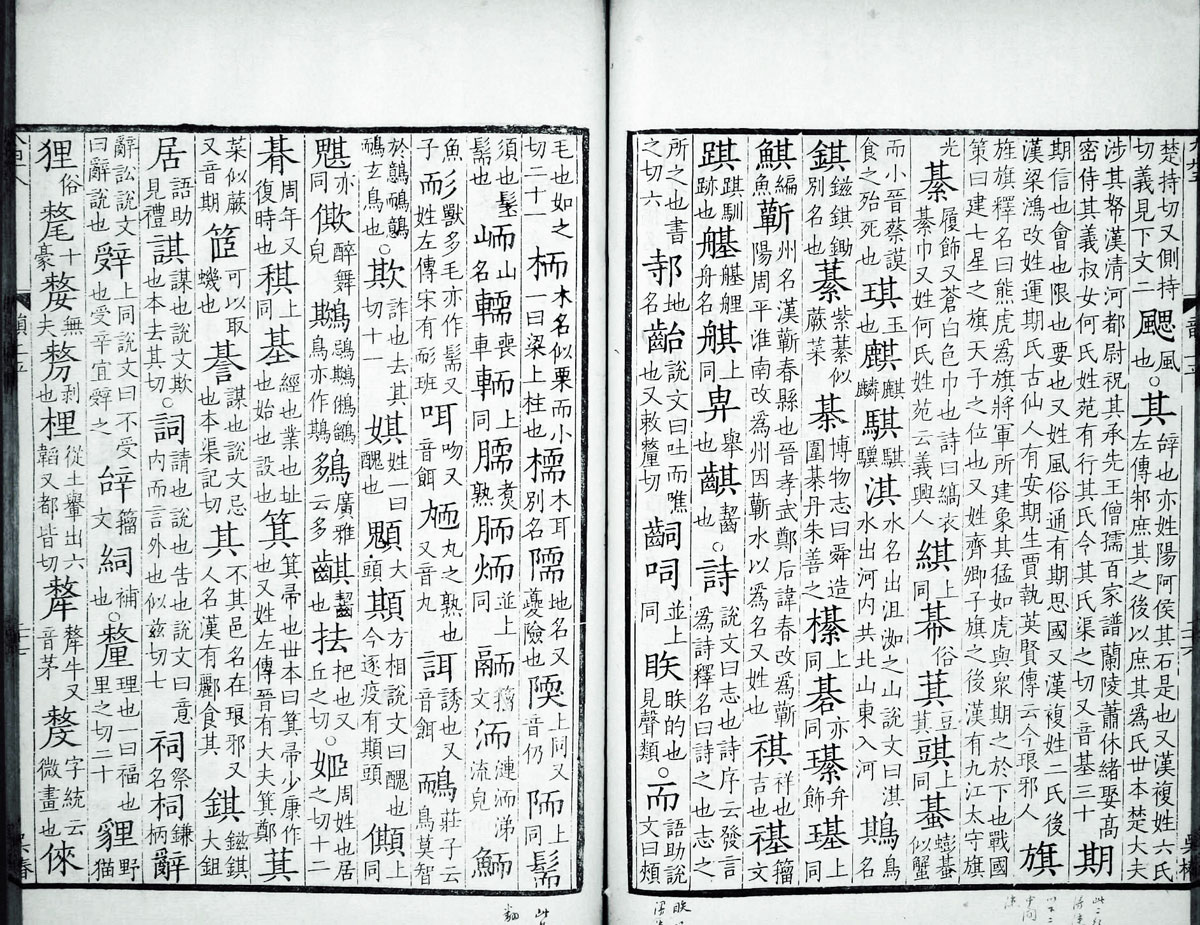 楚持切又側持切義見下文二颸風也○其辝也亦姓陽阿侯其石是也又漢複姓六氏左傳邾庶其之後以庶其爲氏世本楚大夫
涉其帑漢清河都尉祝其承先王僧孺百家譜蘭陵蕭休緒娶高密侍其義叔女何氏姓苑有行其氏今其氏渠之切又音基三十期
期信也會也限也要也又姓風俗通有期思國又漢複姓二氏後漢梁鴻改姓運期氏古仙人有安期生賈執英賢傳云今琅邪人旗
旌旗釋名曰熊虎爲旗將軍所建象其猛如虎與衆期之於下也戰國策曰建七星之旗天子之位也又姓齊卿子旗之後漢有九江太守旗
光綦履飾又蒼白色巾也詩曰縞衣綦巾又姓何氏姓苑云義興人綨上同帺俗萁豆萁上同蜝蟛蜝似蟹
而小晉蔡謨食之殆死也琪玉也麒麒麟騏騏驥淇水名出沮洳之山說文曰淇水出河內共北山東入河鶀鳥名
錤鎡錤鋤別名也藄紫藄似蕨菜棊博物志曰舜造圍棊丹朱善之櫀上同碁亦同璂弁飾上同
鯕編魚蘄州名漢蘄春縣也晉孝武鄭后諱春改爲蘄陽周平淮南改爲州因蘄水以爲名又姓也祺祥也吉也禥籀
踑踑馴跡也艃舟名上同畁舉也齧也○詩說文曰志也詩序云發言爲詩釋名曰詩之也志之
所之也書之切六邿地名齝說文曰吐而噍也又敕釐切呞並上同眣眣的也見聲類○而語助說文曰頰
毛也如之切二十一栭木名似栗而小一曰梁上柱也檽木耳別名陾地名又險也陑上同又音仍上同髵
須也髵也峏山名輀喪車上同胹煮熟並上同鬲文洏漣洏涕流皃鮞
魚子而彡獸多毛亦作髵又姓左傳宋有耏班咡吻又音餌丸之熟也又音丸誀誘也又音餌鴯莊子云鳥莫智
於鷾鴯鷾鴯玄鳥也○欺詐也去其切十一娸姓一曰醜也䫏大頭方相說文曰醜也今逐疫有䫏頭僛上
䰩亦同僛醉舞皃鶀鶀鵂鶹鳥亦作鶀廣雅云多䶞齧也抾把也又丘之切○姬周姓也居之切十二
朞周年又復時也稘上同基經也業也址也始也設也箕箕帚也世本曰箕帚少康作也又姓左傳晉有大夫箕鄭萁
菜似蕨又音期䇫可以取蟣也諅謀也說文忌也本渠記切其不其邑名在琅邪又人名漢有酈食其錤鎡錤大鉏
居語助見禮諆謀也說文欺也本去其切○詞請也說也告也說文曰意內而言外也似兹切七祠祭名柌鎌柄辭
辭訟說文曰辭說也辤上同說文曰不受也受辛宜辤之辝籀文䛐補也○釐理也一曰福也里之切二十貍野貓
狸俗氂十豪嫠無夫剺剥也梩從土轝出六韜又都皆切犛犛牛又音茅字統云微畫也倈